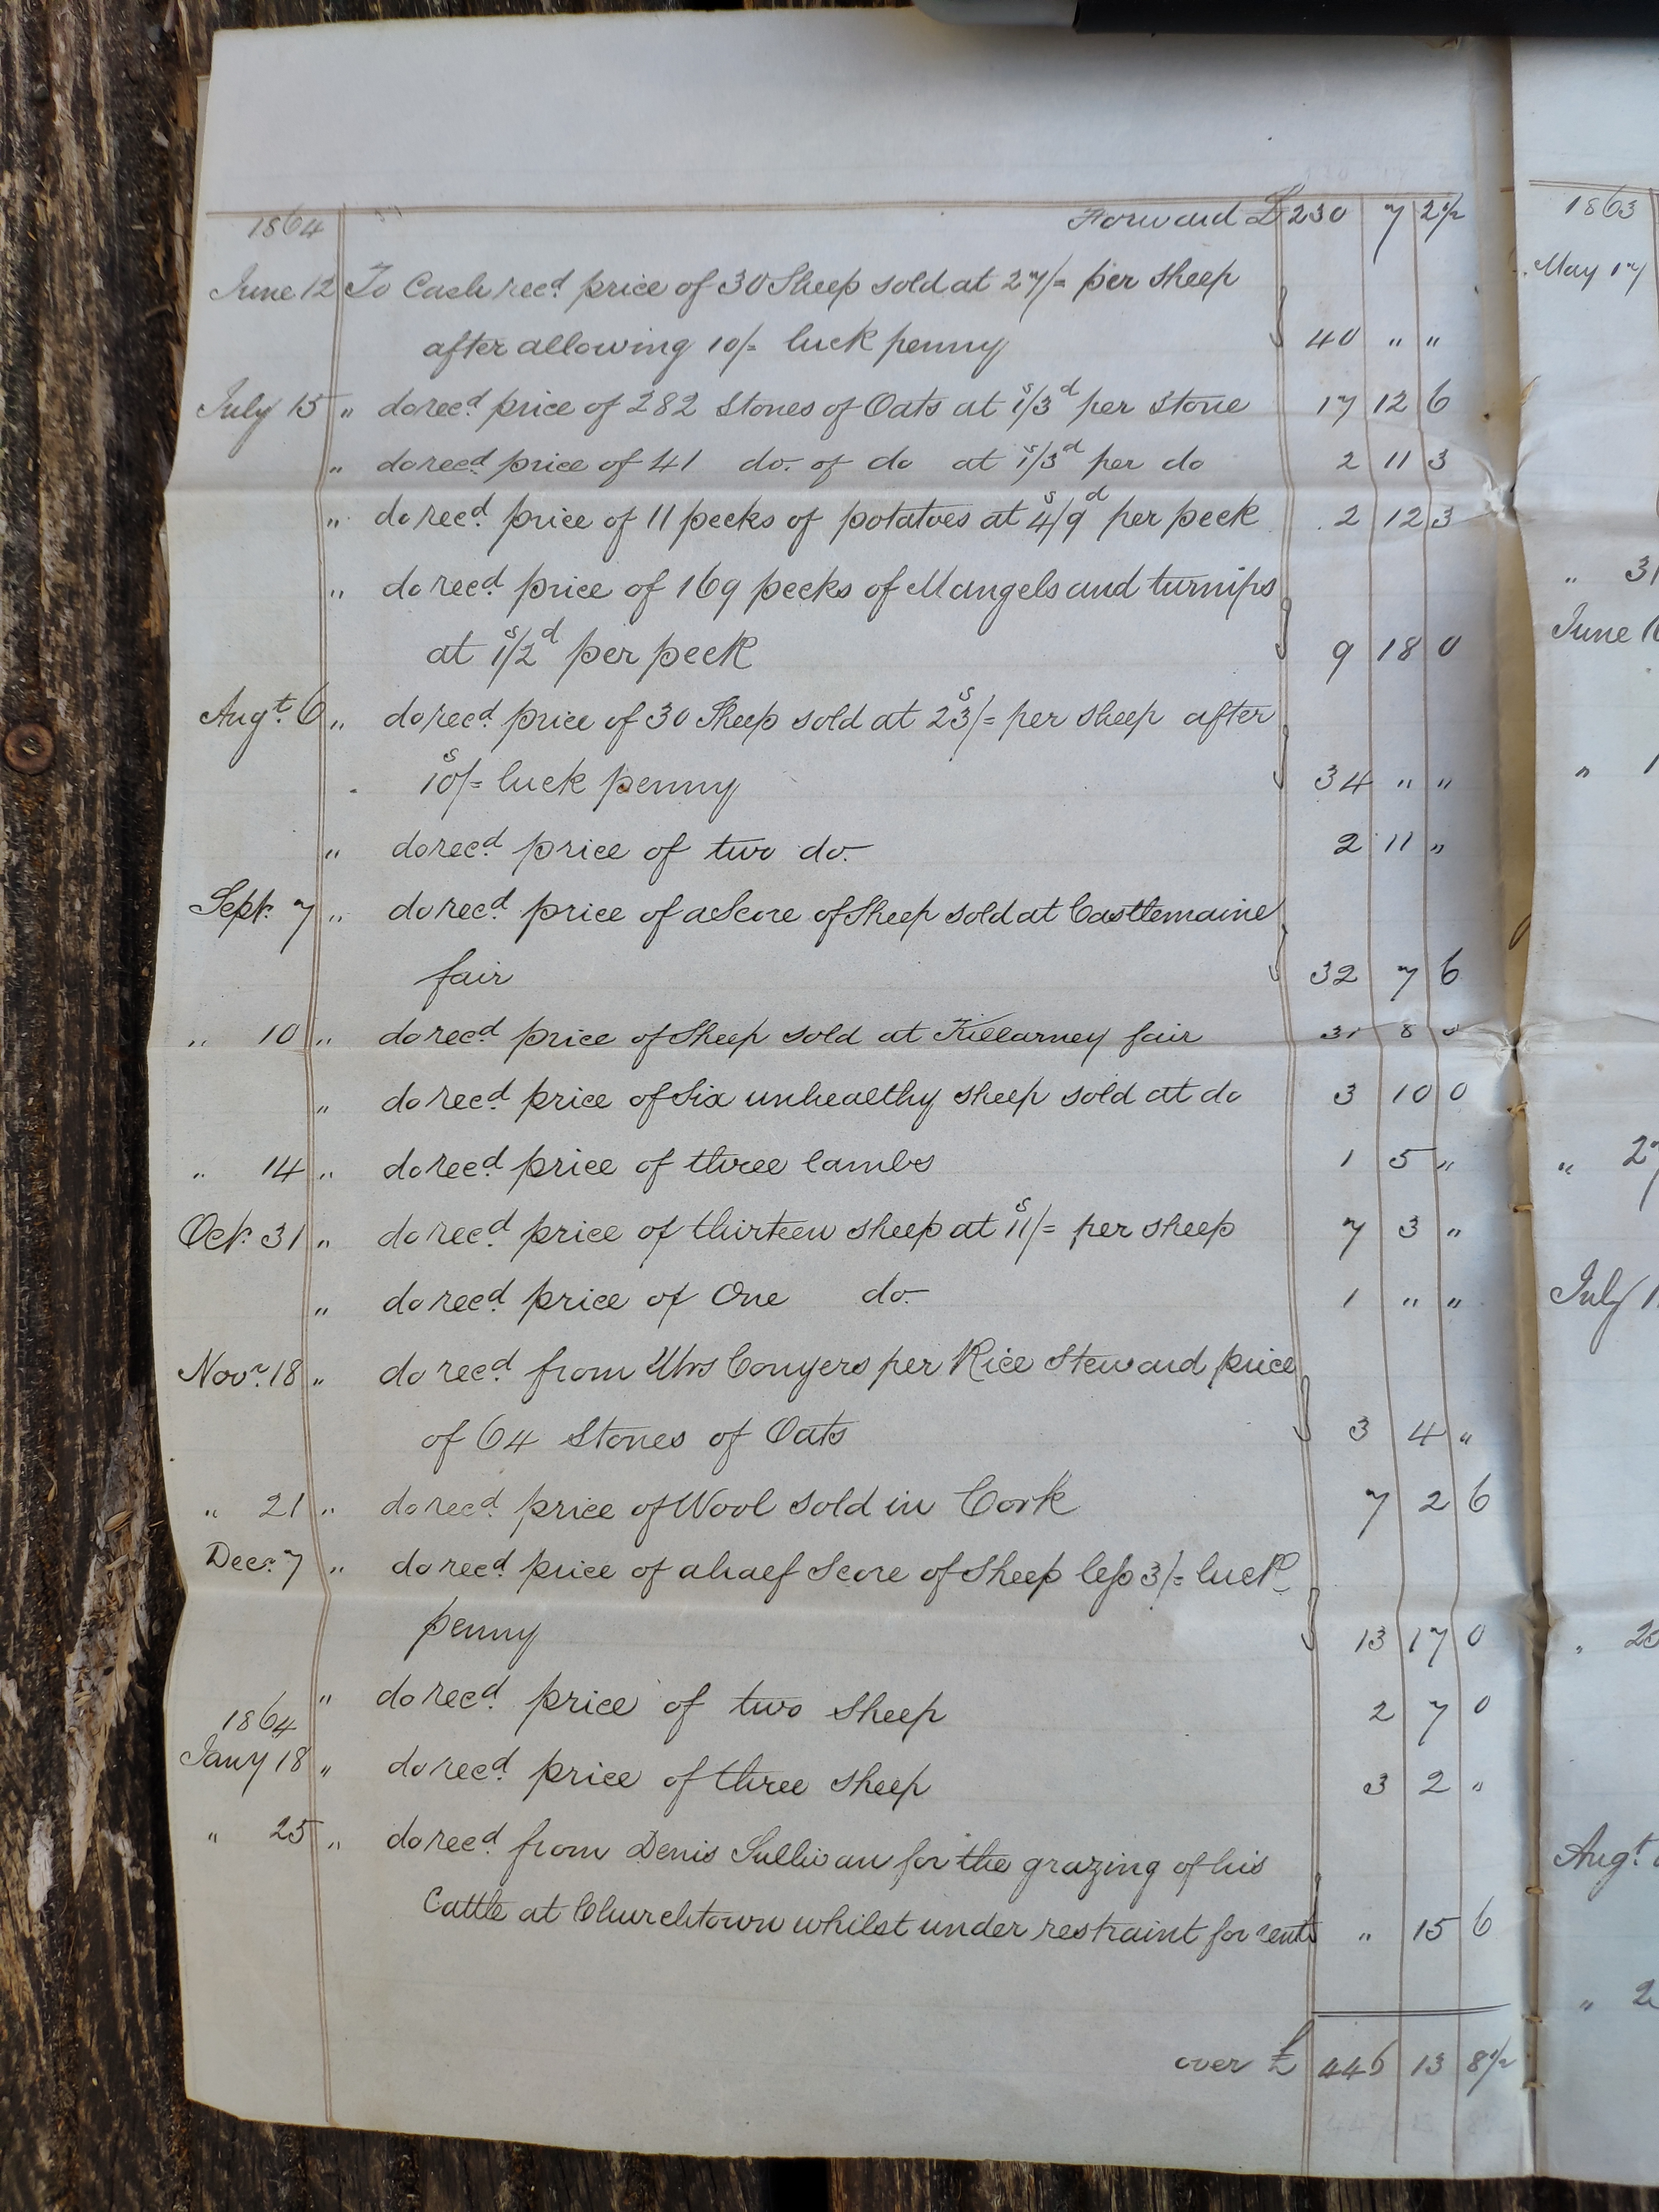 1864 Forward £ 230 7 2½
June 12 To Cash recd. price of 30 Sheep sold at 27/= per sheep
after allowing 10/= luck penny 40 " "
July 15 " do recd. price of 282 Stones of Oats at 1s/3d per stone 17 12 6
" do recd. price of 41 do. of do at 1s/3d per do 2 11 3
" do recd. price of 11 pecks of potatoes at 4s/9d per peck 2 12 3
" do recd. price of 169 pecks of Mangels and turnips
at 1s/2d per peck 9 18 0
Augt. 6 " do recd. price of 30 Sheep sold at 23s/= per sheep after
10s/= luck penny 34 " "
" do recd. price of two do. 2 11 "
Sept. 7 " do recd. price of a Score of Sheep sold at Castlemaine
fair 32 7 6
" 10 " do recd. price of Sheep sold at Killarney fair 31 8 0
" do recd. price of Six unhealthy sheep sold at do 3 10 0
" 14 " do recd. price of three lambs 1 5 "
Oct. 31 " do recd. price of thirteen sheep at 11s/= per sheep 7 3 "
" do recd. price of One do. 1 " "
Novr. 18 " do recd. from Mrs Conyers per Rice Steward price
of 64 Stones of Oats 3 4 "
" 21 " do recd. price of Wool sold in Cork 7 2 6
Decr. 7 " do recd. price of a half Score of Sheep less 3/= luck
penny 13 17 0
" do recd. price of two sheep 2 7 0
1864
Jany 18 " do recd. price of three sheep 3 2 "
" 25 " do recd. from Denis Sullivan for the grazing of his
Cattle at Churchtown whilst under restraint for rent " 15 6
over £ 446 13 8½
1863
May 17
" 31
June
"
"
July
"
Augt.
" 2